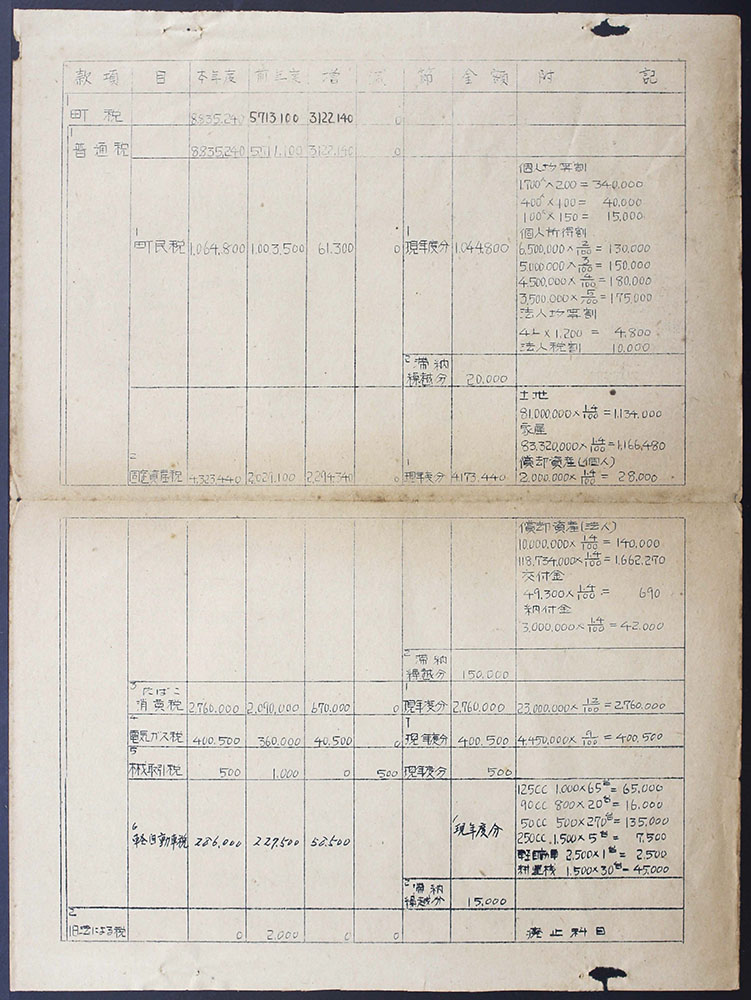 款 項 目 本年度 前年度 増 減 節 金額 附 記
1
町 税 8,835,240 5,713,100 3,122,140 0
1
普通税 8,835,240 3,122,140 0
個人均等割
1,700人×200 = 340,000
400人×100 = 40,000
100人×150 = 15,000
個人所得割
1 町民税 1,064,800 1,003,500 61,300 0 1 現年度分 1,044,800 6,500,000×2/100 = 130,000
5,000,000×3/100 = 150,000
4,500,000×4/100 = 180,000
3,500,000×5/100 = 175,000
法人均等割
4社×1,200 = 4,800
法人税割 10,000
2 滞納
繰越分 20,000
土地
81,000,000×1.4/100 = 1,134,000
家屋
83,320,000×1.4/100 = 1,166,480
償却資産(個人)
2 固定資産税 4,323,440 2,029,100 2,294,340 0 1 現年度分 4,173,440 2,000,000×1.4/100 = 28,000
償却資産(法人)
10,000,000×1.4/100 = 140,000
118,734,000×1.4/100 = 1,662,270
交付金
49,300×1.4/100 = 690
納付金
3,000,000×1.4/100 = 42,000
2 滞納
繰越分 150,000
3 たばこ
消費税 2,760,000 2,090,000 670,000 0 1 現年度分 2,760,000 23,000,000×12/100 = 2,760,000
4
電気ガス税 400,500 360,000 40,500 0 1 現年度分 400,500 4,450,000×9/100 = 400,500
5
木材取引税 500 1,000 0 500 現年度分 500
125CC 1,000×65台 = 65,000
90CC 800×20台 = 16,000
6 軽自動車税 286,000 227,500 58,500 1 現年度分 50CC 500×270台 = 135,000
250CC 1,500×5台 = 7,500
軽自動車 2,500×1台 = 2,500
耕耘機 1,500×30台 = 45,000
2 滞納
繰越分 15,000
2
旧法による税 0 2,000 0 0 廃止科目